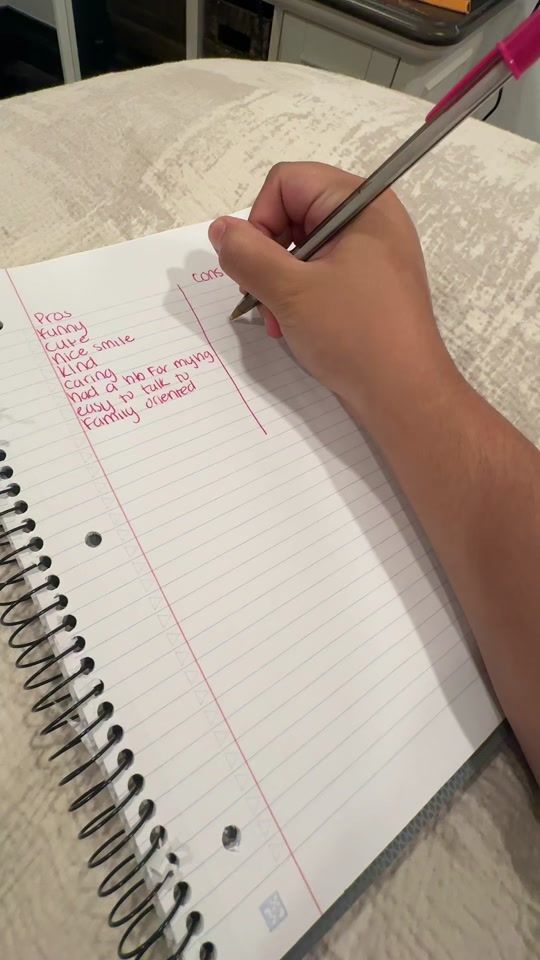 Pros
Funny
cute
nice smile
kind
caring
had a nb for my
easy to talk to
Family oriented
cons